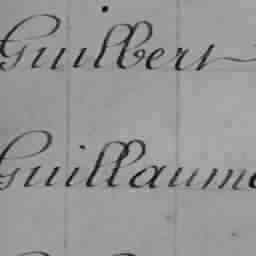 Guilbert
Guillaume